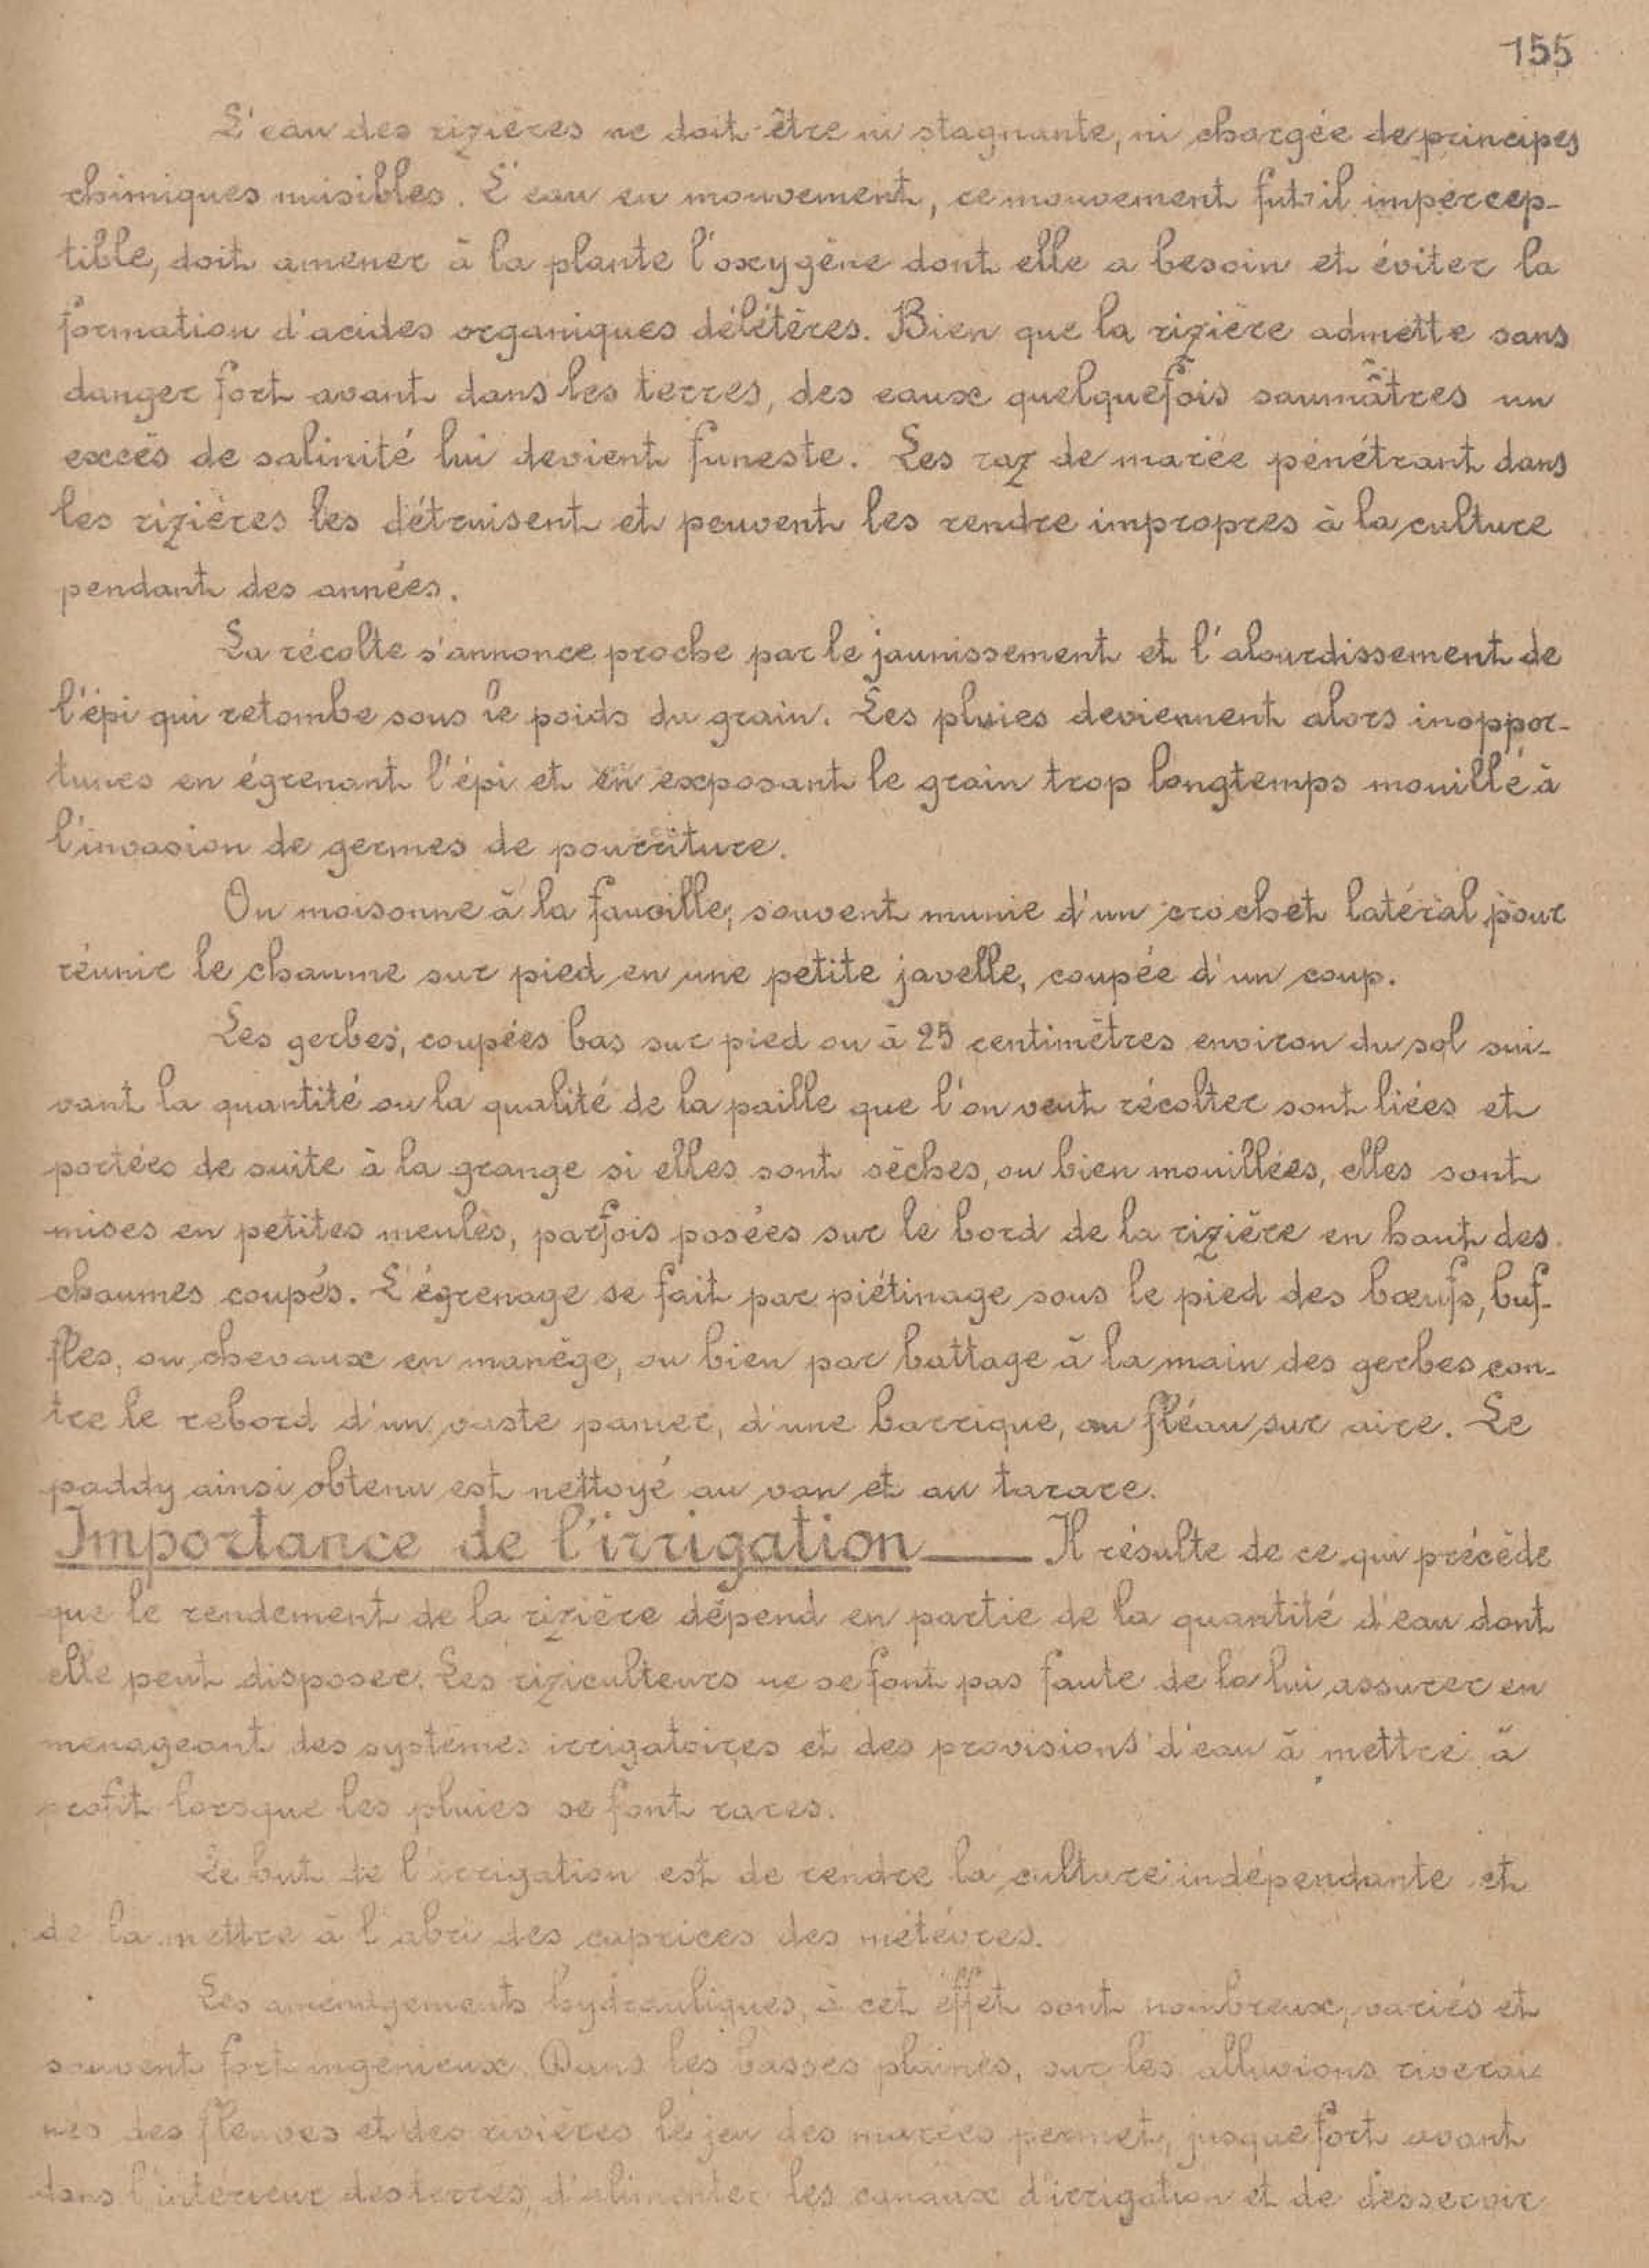 155
L'eau des rizières ne doit être ni stagnante, ni chargée de principes
chimiques nuisibles. L'eau en mouvement, ce mouvement fut-il impercep-
tible, doit amener à la plante l'oxygène dont elle a besoin et éviter la
formation d'acides organiques délétères. Bien que la rizière admette sans
danger fort avant dans les terres, des eaux quelquefois saumâtres un
excès de salinité lui devient funeste. Les raz de marée pénétrant dans
les rizières les détruisent et peuvent les rendre impropres à la culture
pendant des années.
La récolte s'annonce proche par le jaunissement et l'alourdissement de
l'épi qui retombe sous le poids du grain. Les pluies deviennent alors inoppor-
tunes en égrenant l'épi et en exposant le grain trop longtemps mouillé à
l'invasion de germes de pourriture.
On moisonne à la faucille, souvent munie d'un crochet latéral pour
réunir le chaume sur pied en une petite javelle, coupée d'un coup.
Les gerbes, coupées bas sur pied ou à 25 centimètres environ du sol sui-
vant la quantité ou la qualité de la paille que l'on veut récolter sont liées et
portées de suite à la grange si elles sont sèches, ou bien mouillées, elles sont
mises en petites meules, parfois posées sur le bord de la rizière en haut des
chaumes coupés. L'égrenage se fait par piétinage sous le pied des bœufs, buf-
fles, ou chevaux en manège, ou bien par battage à la main des gerbes con-
tre le rebord d'un vaste panier, d'une barrique, au fléau sur aire. Le
paddy ainsi obtenu est nettoyé au van et au tarare.
Importance de l'irrigation — Il résulte de ce qui précède
que le rendement de la rizière dépend en partie de la quantité d'eau dont
elle peut disposer. Les riziculteurs ne se font pas faute de la lui assurer en
menageant des systèmes irrigatoires et des provisions d'eau à mettre à
profit lorsque les pluies se font rares.
Le but de l'irrigation est de rendre la culture indépendante et
de la mettre à l'abri des caprices des météores.
Les aménagements hydrauliques, à cet éffet sont nombreux, variés et
souvent fort ingénieux. Dans les basses plaines, sur les alluvions riverai-
nes des fleuves et des rivières le jeu des marées permet, jusque fort avant
dans l'intérieur des terres, d'alimenter les canaux d'irrigation et de desservir